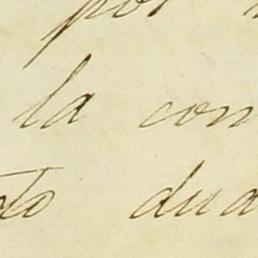 por
la con
dua